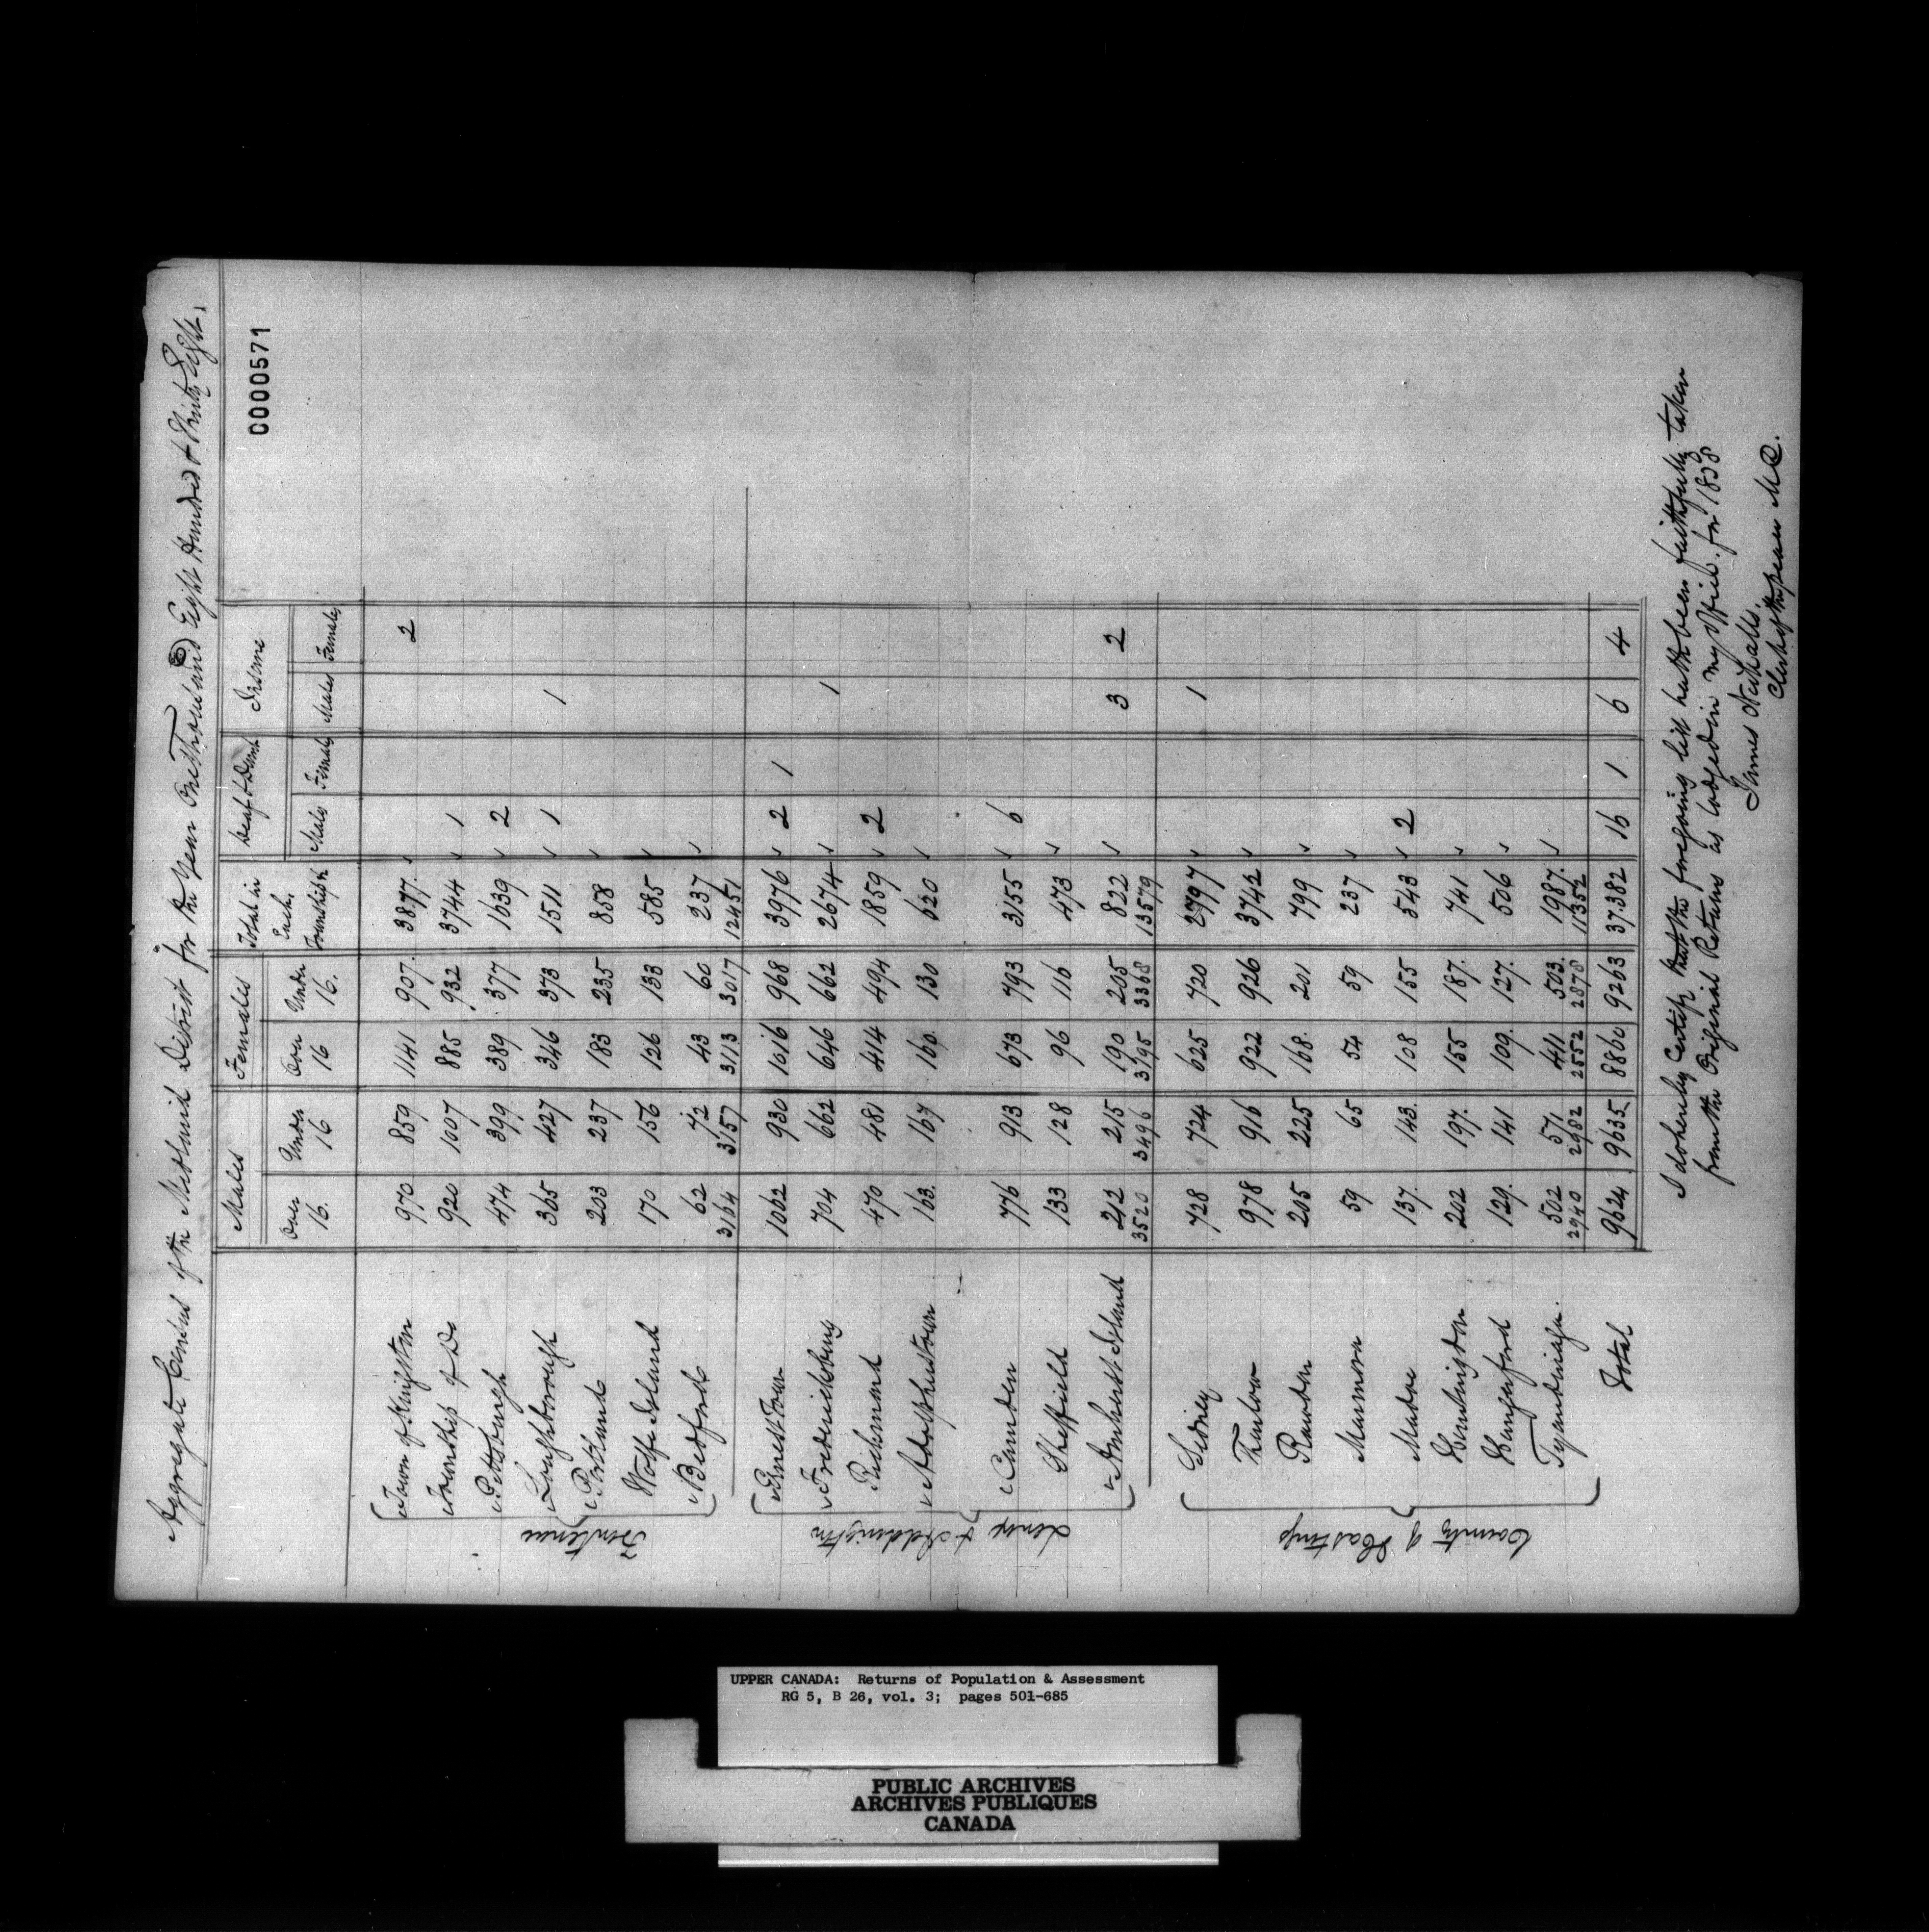 Aggregate Census of the Midland District for the Year One Thousand Eight Hundred & Thirty Eight.
0000571
Males Females Total in Each Township Deaf & Dumb Insane
Over 16. Under 16 Over 16 Under 16. Males Females Males Females
Frontenac
Town of Kingston 970 859 1141 907. 3877. 2
Township of Do 920 1007 885 932 3744 1
Pittsburgh 474 399 389 377 1639 2
Loughborough 365 427 346 373 1511 1 1
Portland 203 237 183 235 858
Wolfe Island 170 156 126 133 585
Bedford 62 72 43 60 237
3164 3157 3113 3017 12451
Lenox & Addington
Ernest Town 1062 930 1016 968 3976 2 1
Fredericksburg 704 662 646 662 2674 1
Richmond 470 481 414 494 1859 2
Adolphustown 163. 167 160. 130 620
Camden 776 913 673 793 3155 6
Sheffield 133 128 96 116 473
Amherst Island 212 215 190 205 822 3 2
3520 3496 3195 3368 13579
County of Hastings
Sidney 728 724 625 720 2797 1
Thurlow 978 916 922 926 3742
Rawdon 205 225 168. 201 799
Marmora 59 65 54 59 237
Madoc 137. 143. 108 155 543 2
Huntingdon 202 197. 155 187. 741
Hungerford 129. 141 109. 127. 506
Tyendinaga. 502 571 411 503. 1987.
2940 2982 2552 2878 11352
Total 9624 9635 8860 9263 37382 16 1 6 4
I do hereby Certify that the foregoing list hath been faithfully taken
from the Original Returns as lodged in my office. for 1838
James Nickalls.
Clerk of the peace M.D.
UPPER CANADA: Returns of Population & Assessment
RG 5, B 26, vol. 3; pages 501-685
PUBLIC ARCHIVES
ARCHIVES PUBLIQUES
CANADA